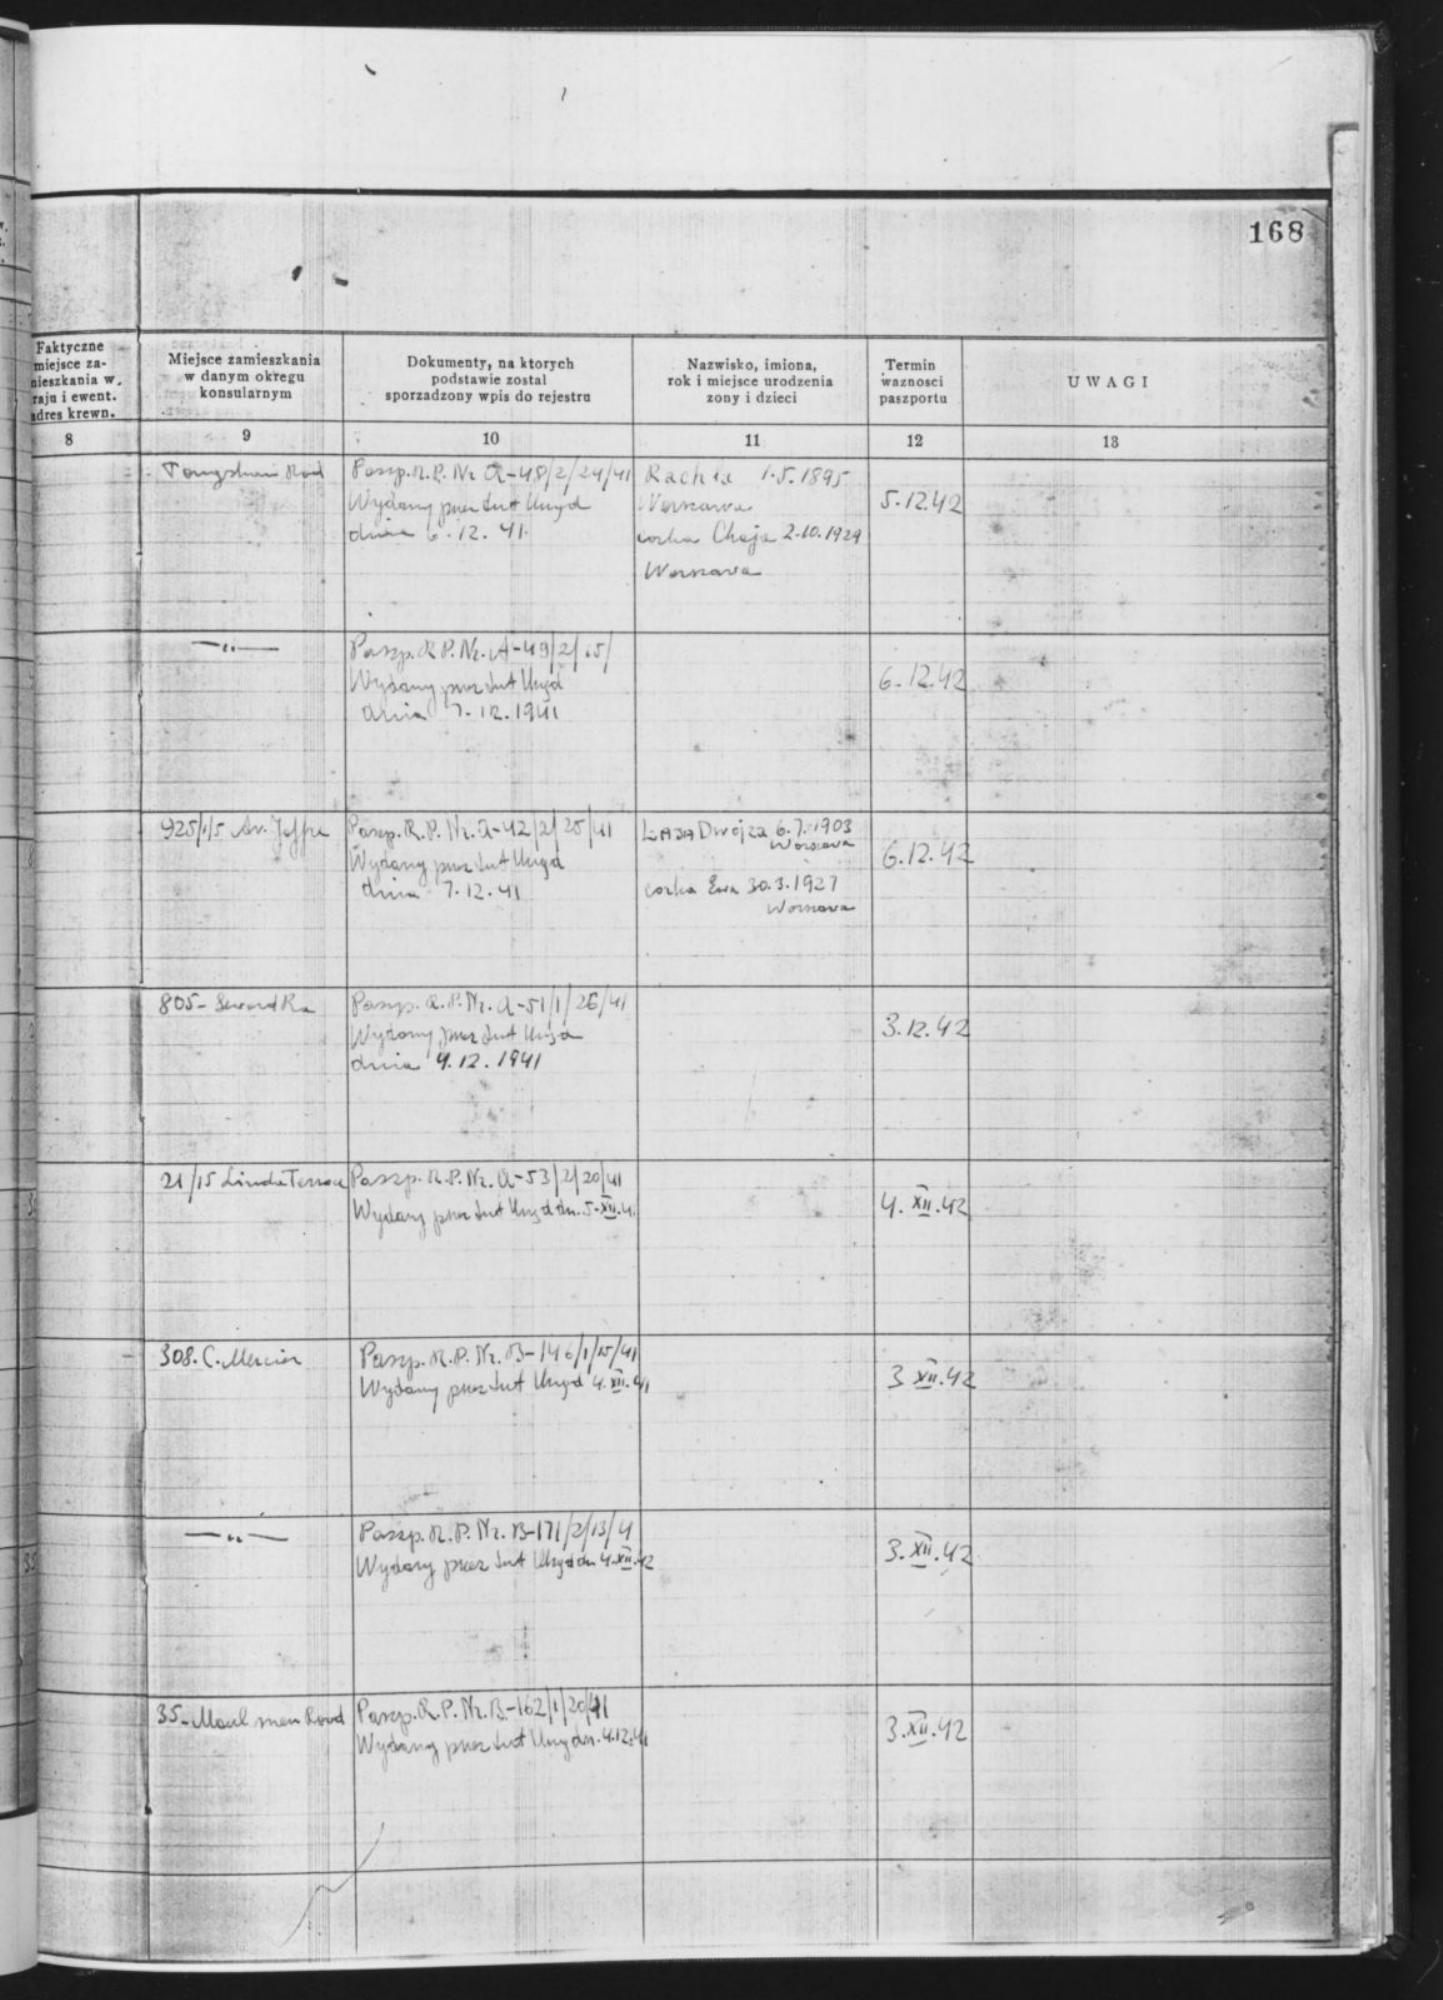 168
Faktyczne
miejsce za-
mieszkania w
kraju i ewent.
adres krewn.
Miejsce zamieszkania
w danym okręgu
konsularnym
Dokumenty, na ktorych
podstawie zostal
sporzadzony wpis do rejestru
Nazwisko, imiona,
rok i miejsce urodzenia
zony i dzieci
Termin
waznosci
paszportu
UWAGI
8
9
10
11
12
13
Tongshan Road
Paszp. R.P. Nr. A-48/2/24/41
Wydany przez tut Urząd
dnia 6.12.41.
Rachla 1.5.1895
Warszawa
corka Chaja 2.10.1929
Warszawa
5.12.42
—"—
Paszp. R.P. Nr. A-49/2/15/
Wydany przez tut Urząd
dnia 7.12.1941
6.12.42
925/1/5 Av. Joffre
Paszp. R.P. Nr. A-42/2/25/41
Wydany przez tut Urząd
dnia 7.12.41
Łaja Dwojza 6.7.1903
Warszawa
corka Ewa 30.3.1927
Warszawa
6.12.42
805- Seward Rd
Paszp. R.P. Nr. A-51/1/26/41
Wydany przez tut Urząd
dnia 4.12.1941
3.12.42
21/15 Linda Terrace
Paszp. R.P. Nr. A-53/2/20/41
Wydany przez tut Urząd dn. 5-XII.4
4.XII.42
308. C. Mercier
Paszp. R.P. Nr. B-146/1/15/41
Wydany przez tut Urząd 4.XII.41
3 XII.42
—"—
Paszp. R.P. Nr. B-171/2/13/4
Wydany przez tut Urząd dn 4.XII.42
3.XII.42
35- Moulmen Road
Paszp. R.P. Nr. B-162/1/20/41
Wydany przez tut Urz dn. 4.12.41
3.XII.42